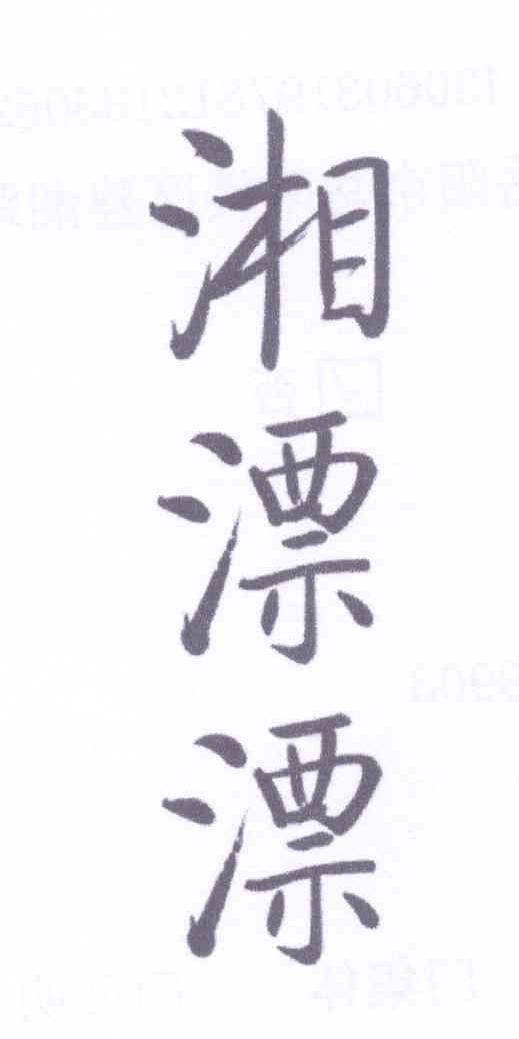 湘漂漂